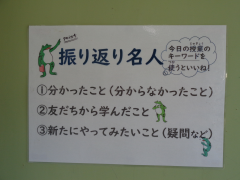 振り返り名人
今日の授業の
キーワードを
使うといいね！
①分かったこと（分からなかったこと）
②友だちから学んだこと
③新たにやってみたいこと（疑問など）